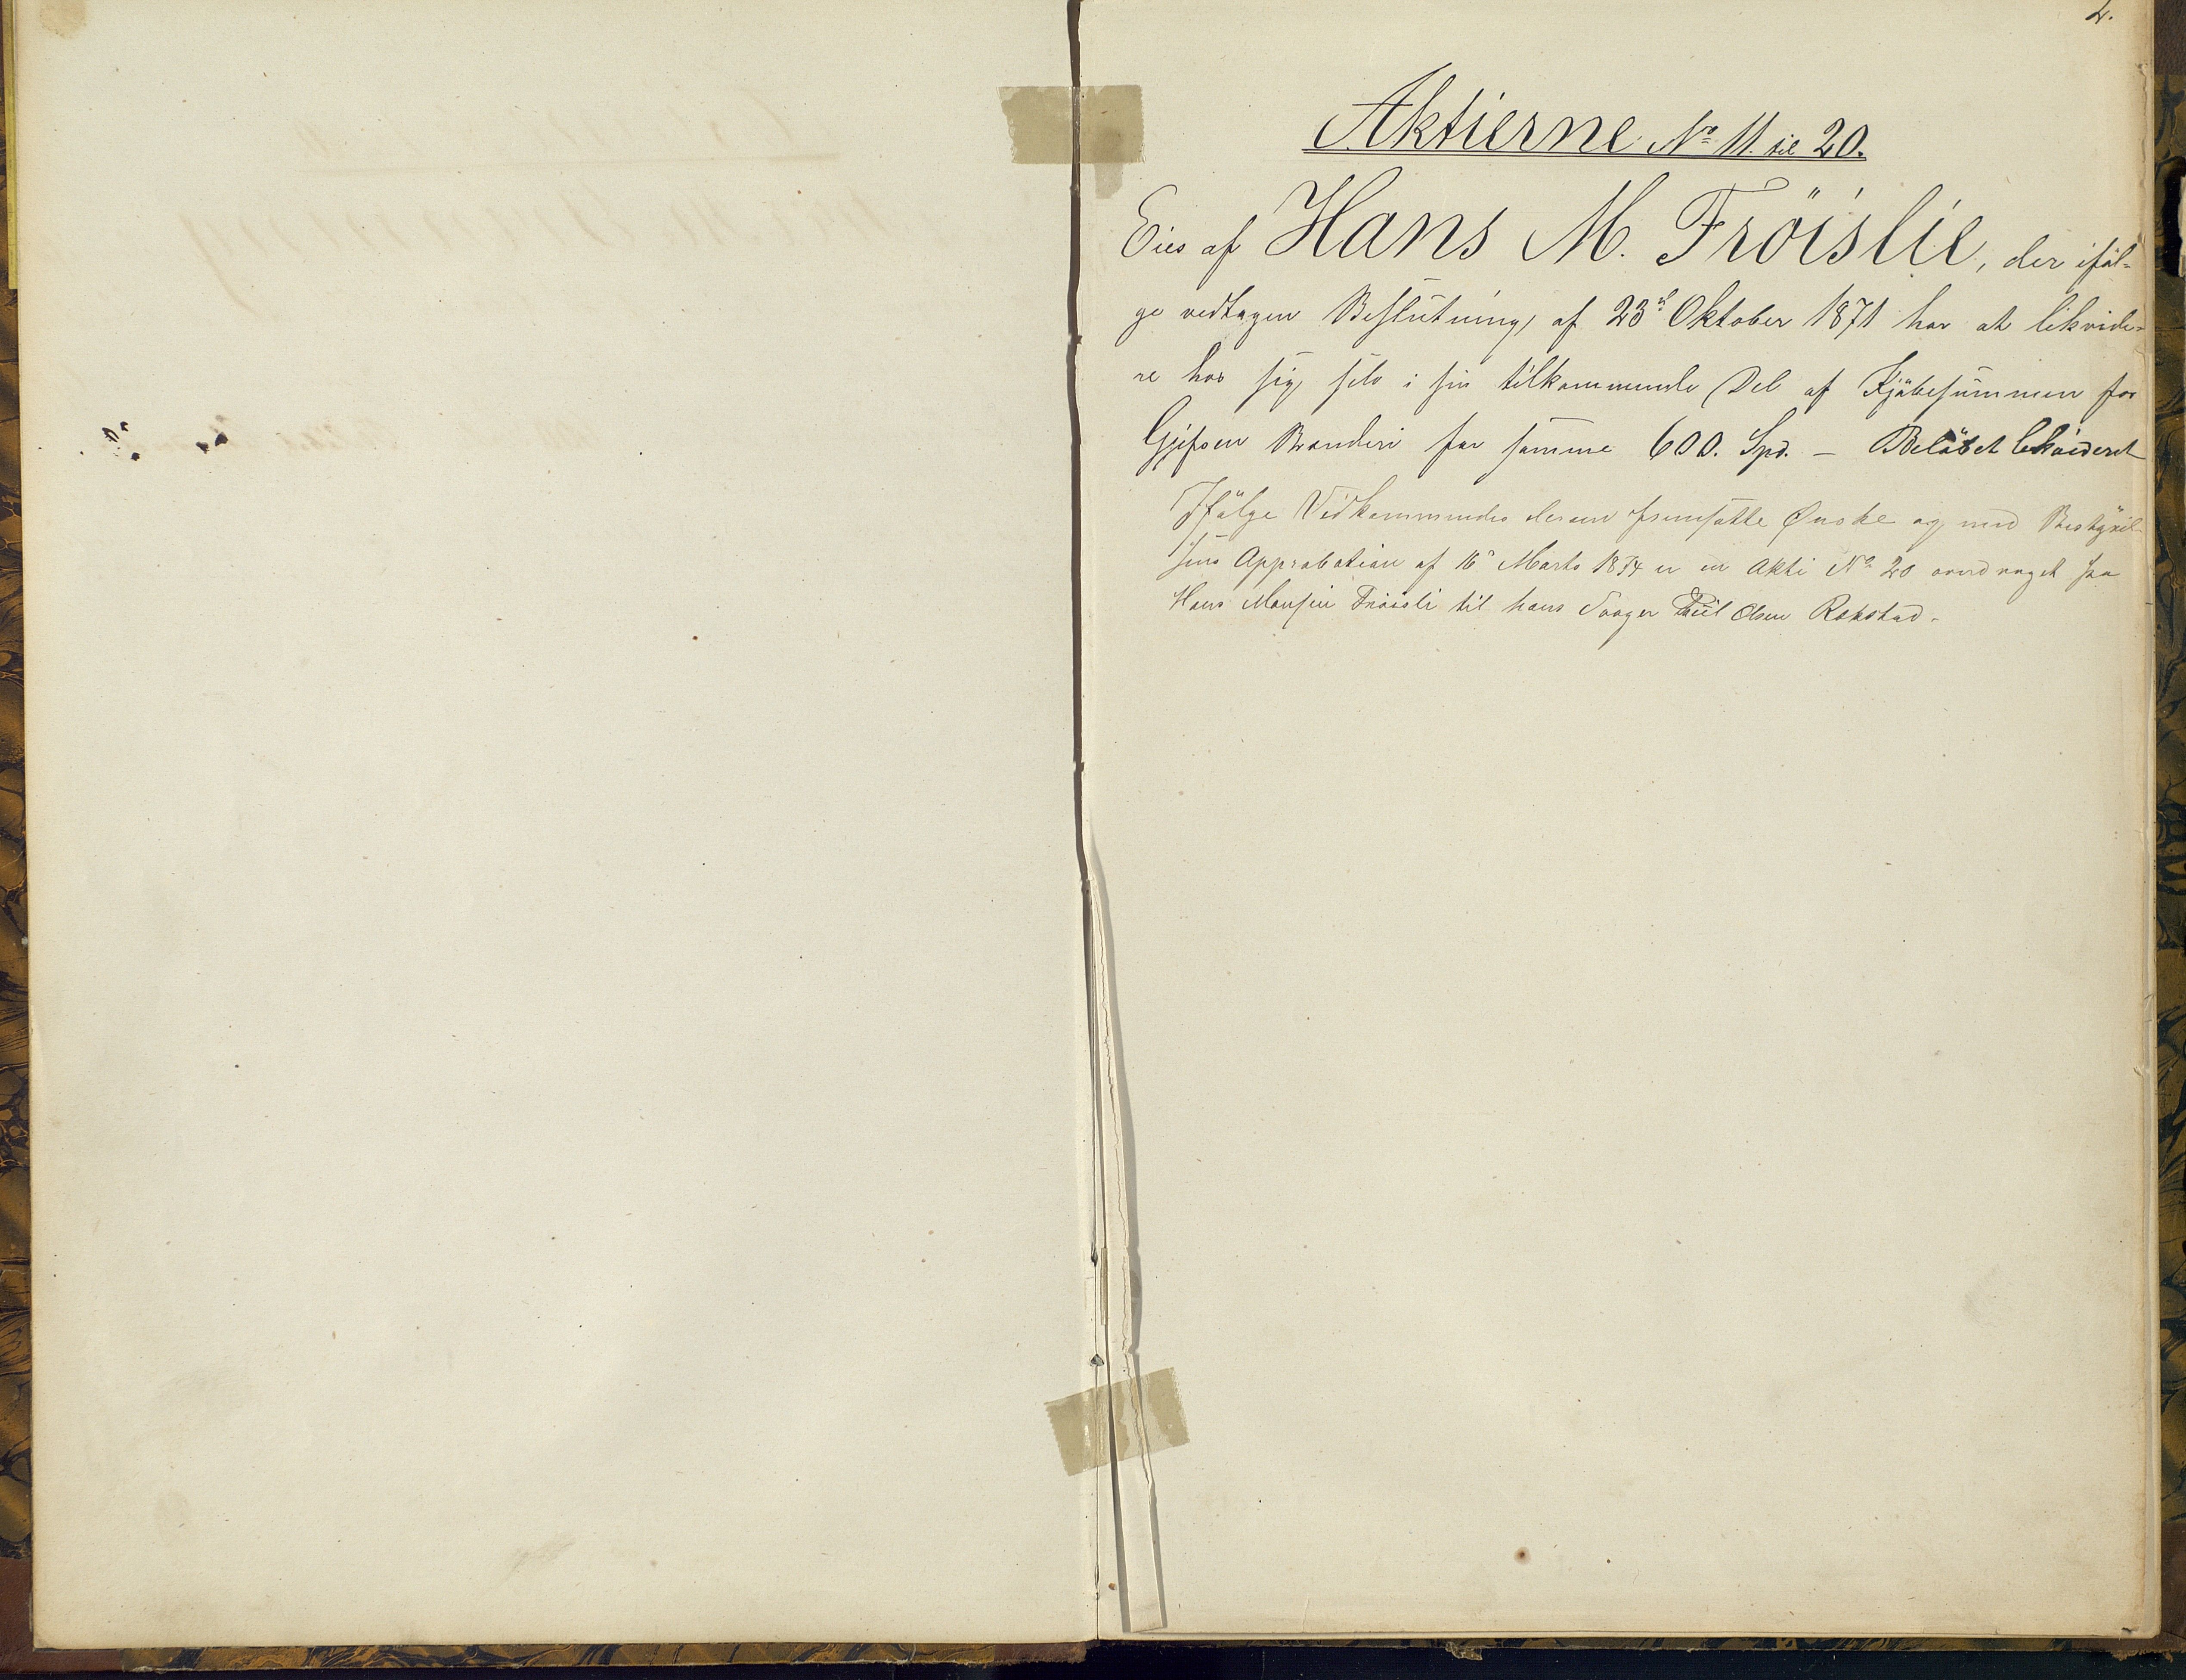 2.
Aktierne No 11. til 20.
Eies af Hans M. Fröislie, der iföl-
ge vedtagen Beslutning af 23d Oktober 1871 har at likvide-
re hos sig selv i sin tilkommende Del af Kjöbesummen for
Gjefsen Brænderi for samme 600. Spd. — Belöbet likvideret
Ifölge Vedkommendes derom fremsatte Ønske og med Bestyrel-
sens Approbation af 16d Marts 1874 er en Akti No 20 overdraget fra
Hans Monsen Fröisli til hans Svoger Olsen Rækstad.